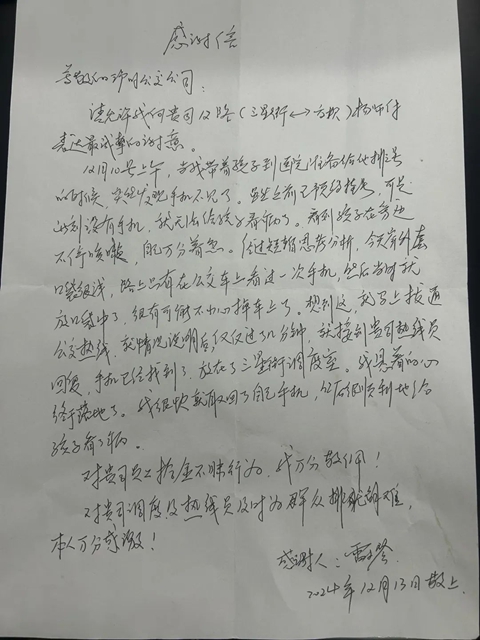 感谢信
尊敬的沖州公交公司：
请允许我向贵司12路（三星街↔方坝）杨师付
表达最诚挚的谢意。
12月10号上午，当我带着孩子到医院准备给他排号
的时候，突然发现手机不见了。虽然之前已预约挂号，可是
此刻没有手机，我无法给孩子看病了。看到孩子在旁边
不停咳嗽，自己万分着急。经过短暂思考分析，今天穿外套
口袋很浅，路上只有在公交车上看过一次手机，然后当时就
放口袋中了，很有可能不小心掉车上了。想到这，立马上拨通
公交热线，就情况说明后，仅仅过了几分钟，就接到贵司热线员
回复，手机已经找到了，放在了三星街调度室。我悬着的心
终于落地了。我很快就取回了自己手机，然后很顺利地给
孩子看了病。
对贵司员工拾金不昧行为，我万分敬佩！
对贵司调度及热线员及时为群众排忧解难，
本人万分感激！
感谢人：
2024年12月13日敬上